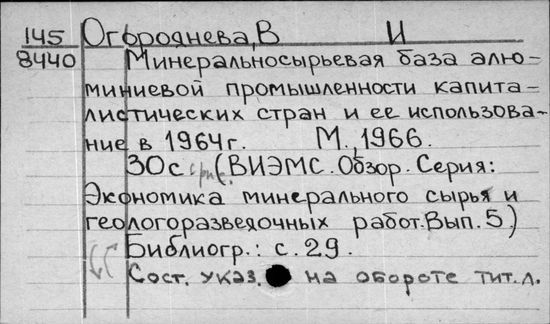 145 Огороднева, В И
8440 Минеральносырьевая база алю-
миниевой промышленности капита-
листических стран и ее использова-
ние в 1964г. М., 1966.
30с. (ВИЭМС. Обзор. Серия:
Экономика минерального сырья и
геологоразведочных работ. Вып. 5.)
Библиогр.: с. 29.
Сост. указ. на обороте тит. л.